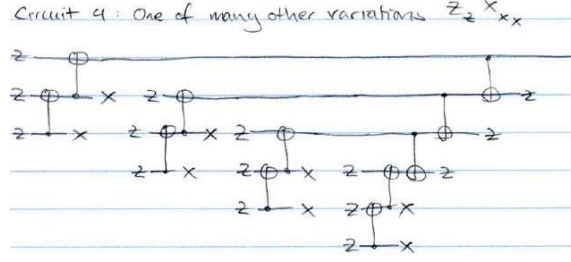 Circuit 4: One of many other variations Z Z X X X
Z
Z X Z Z
Z X Z X Z Z
Z X Z X Z Z
Z X Z X
Z X